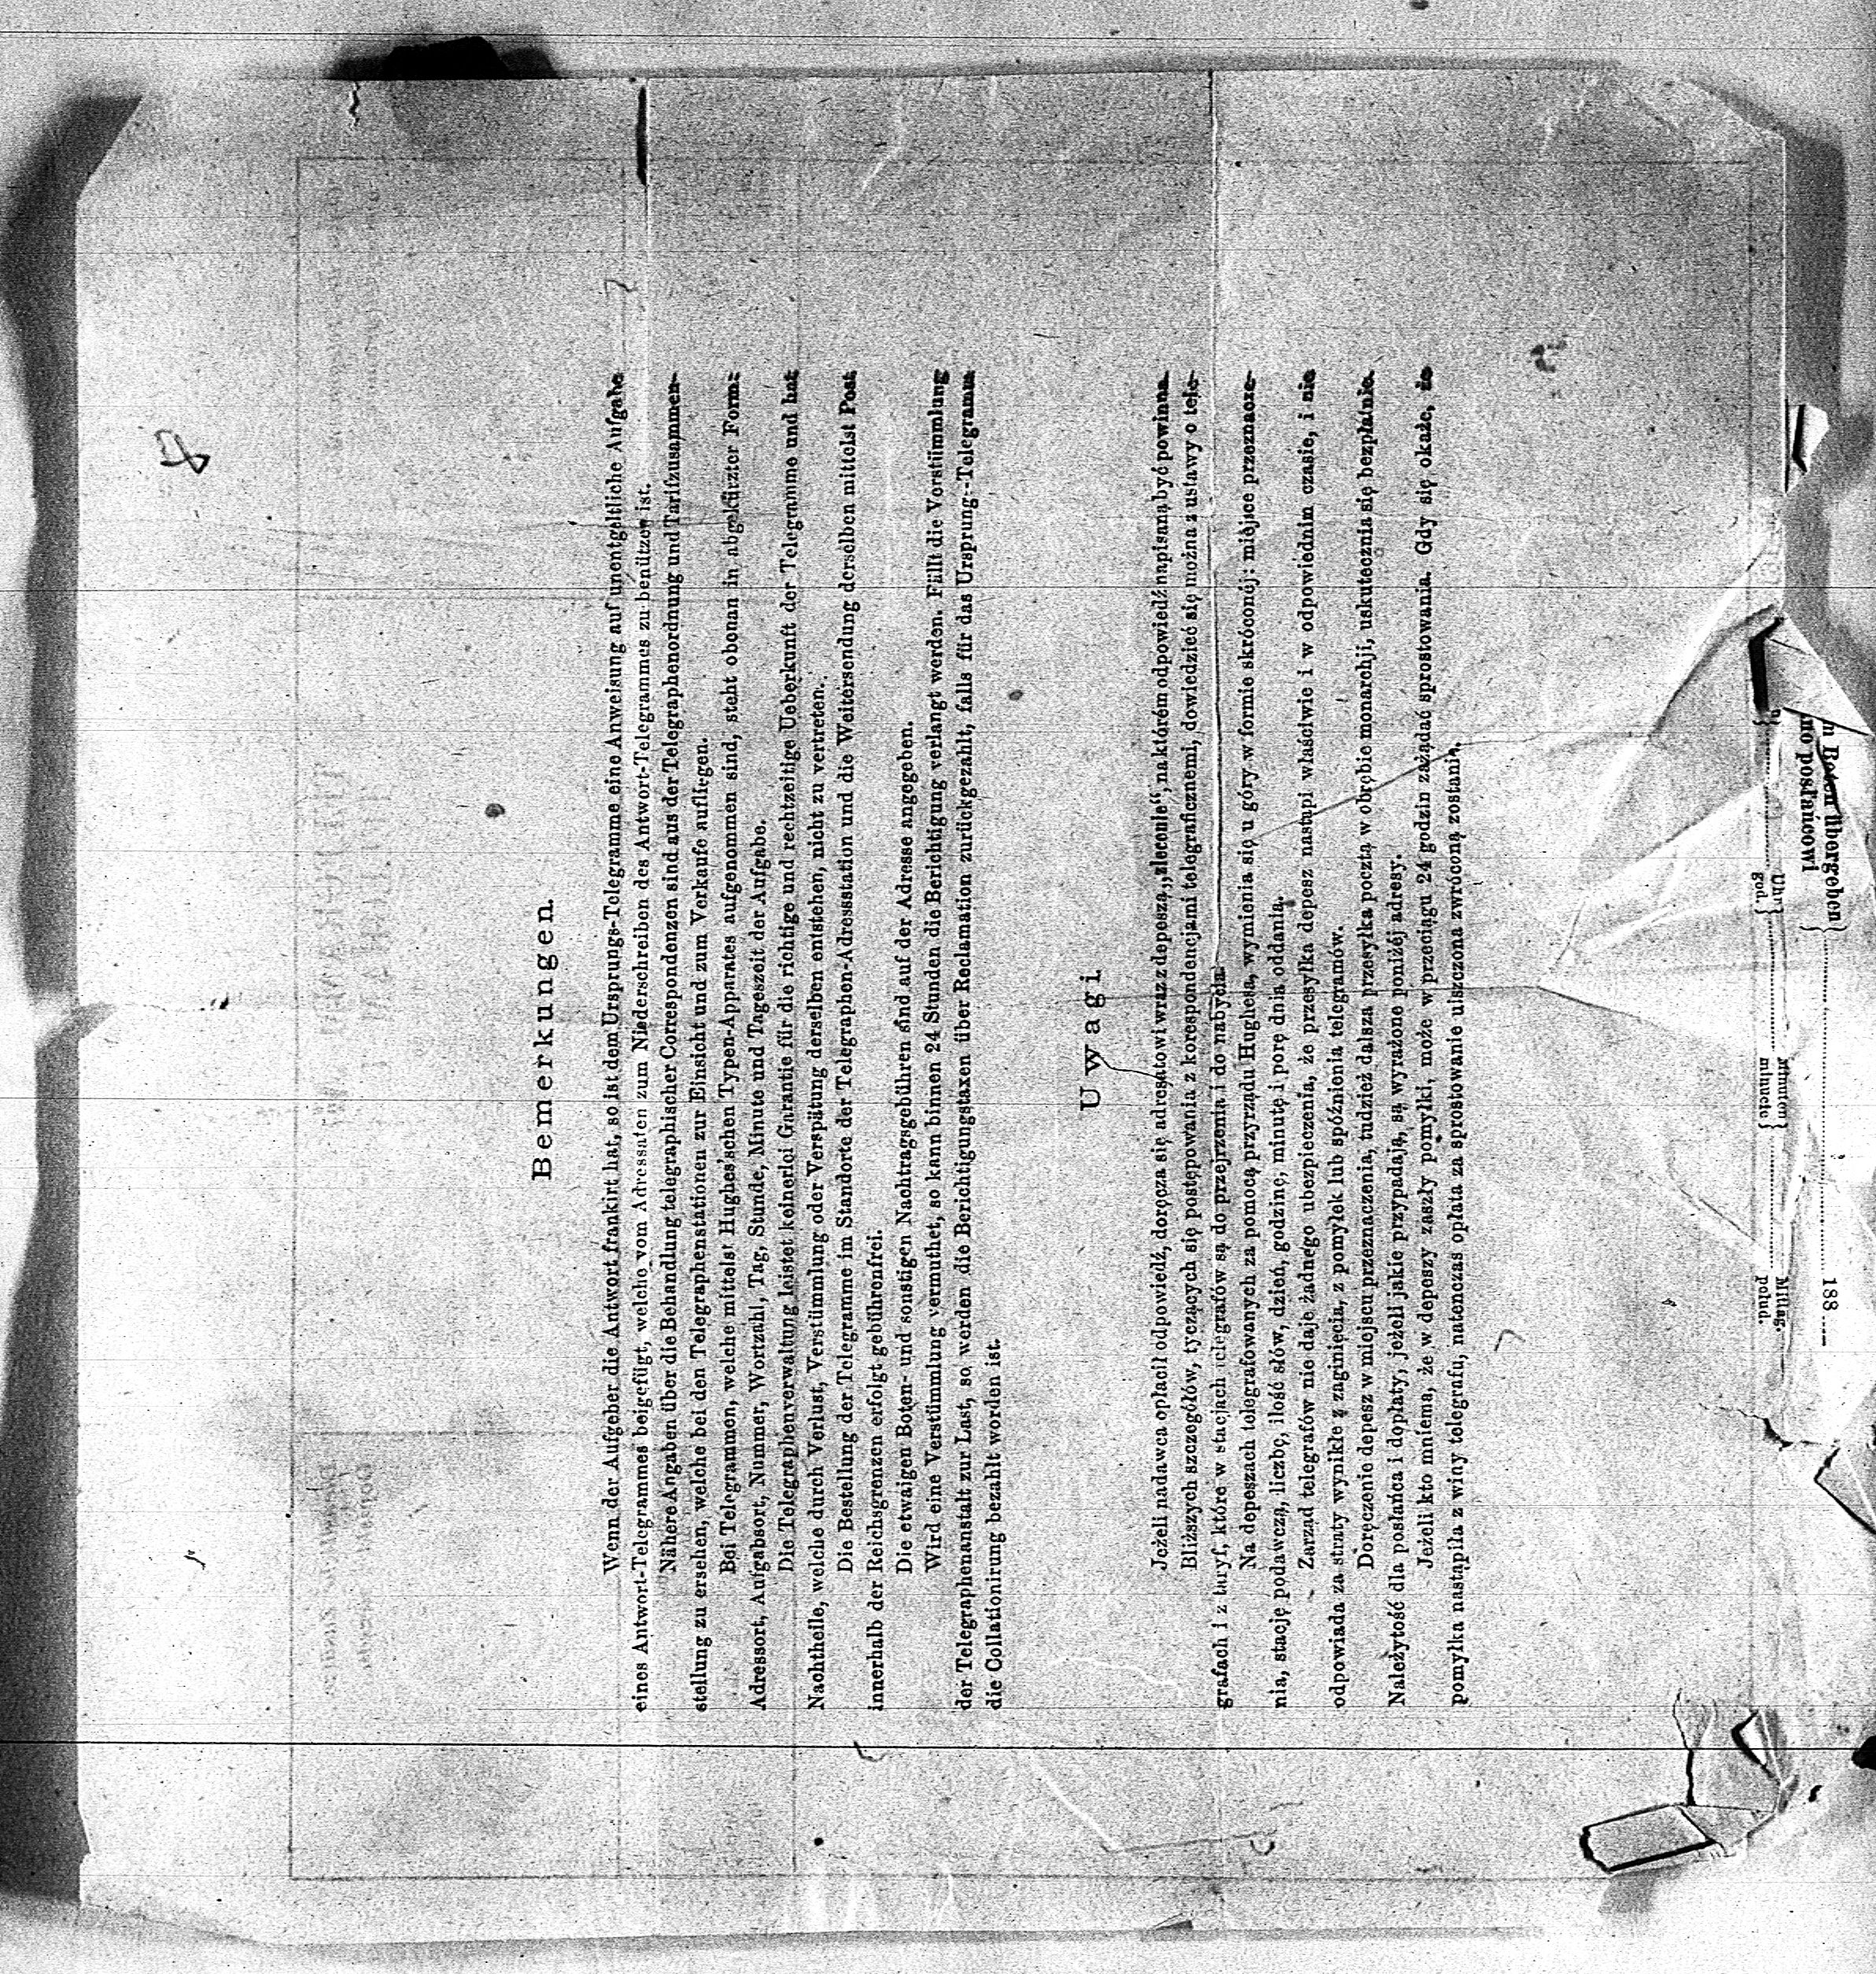 Bemerkungen.
Wenn der Aufgeber die Antwort frankirt hat, so ist dem Ursprungs-Telegramme eine Anweisung auf unentgeltliche Aufgabe
eines Antwort-Telegrammes beigefügt, welche vom Adressaten zum Niederschreiben des Antwort-Telegrammes zu benützen ist.
Nähere Angaben über die Behandlung telegraphischer Correspondenzen sind aus der Telegraphenordnung und Tarifzusammen-
stellung zu ersehen, welche bei den Telegraphenstationen zur Einsicht und zum Verkaufe aufliegen.
Bei Telegrammen, welche mittelst Hughes'schen Typen-Apparates aufgenommen sind, steht obenan in abgekürzter Form:
Adressort, Aufgabsort, Nummer, Wortzahl, Tag, Stunde, Minute und Tageszeit der Aufgabe.
Die Telegraphenverwaltung leistet keinerlei Garantie für die richtige und rechtzeitige Ueberkunft der Telegramme und hat
Nachtheile, welche durch Verlust, Verstümmlung oder Verspätung derselben entstehen, nicht zu vertreten.
Die Bestellung der Telegramme im Standorte der Telegraphen-Adressstation und die Weitersendung derselben mittelst Post
innerhalb der Reichsgrenzen erfolgt gebührenfrei.
Die etwaigen Boten- und sonstigen Nachtragsgebühren sind auf der Adresse angegeben.
Wird eine Verstümmlung vermuthet, so kann binnen 24 Stunden die Berichtigung verlangt werden. Fällt die Verstümmlung
der Telegraphenanstalt zur Last, so werden die Berichtigungstaxen über Reclamation zurückgezahlt, falls für das Ursprung-Telegramm
die Collationirung bezahlt worden ist.
Uwagi
Jeżeli nadawca opłacił odpowiedź, doręcza się adresatowi wraz z depeszą „zlecenie“, na którem odpowiedź napisaną być powinna.
Bliższych szczegółów, tyczących się postępowania z korespondencjami telegraficznemi, dowiedzieć się można z ustawy o tele-
grafach i z taryf, które w stacjach telegrafów są do przejrzenia i do nabycia.
Na depeszach telegrafowanych za pomocą przyrządu Hughesa, wymienia się u góry w formie skróconéj: miéjsce przeznacze-
nia, stację podawczą, liczbę, ilość słów, dzień, godzinę, minutę i porę dnia oddania.
Zarząd telegrafów nie daje żadnego ubezpieczenia, że przesyłka depesz nastąpi właściwie i w odpowiednim czasie, i nie
odpowiada za straty wynikłe z zaginięcia, z pomyłek lub spóźnienia telegramów.
Doręczenie depesz w miejscu przeznaczenia, tudzież dalsza przesyłka pocztą w obrębie monarchji, uskutecznia się bezpłatnie.
Należytość dla posłańca i dopłaty, jeżeli jakie przypadają, są wyrażone poniżéj adresy.
Jeżeli kto mniema, że w depeszy zaszły pomyłki, może w przeciągu 24 godzin zażądać sprostowania. Gdy się okaże, że
pomyłka nastąpiła z winy telegrafu, natenczas opłata za sprostowanie uiszczona zwróconą zostanie.
Boten übergeben
posłańcowi
188
Uhr
god.
Minuten
minucie
Mittag.
połud.